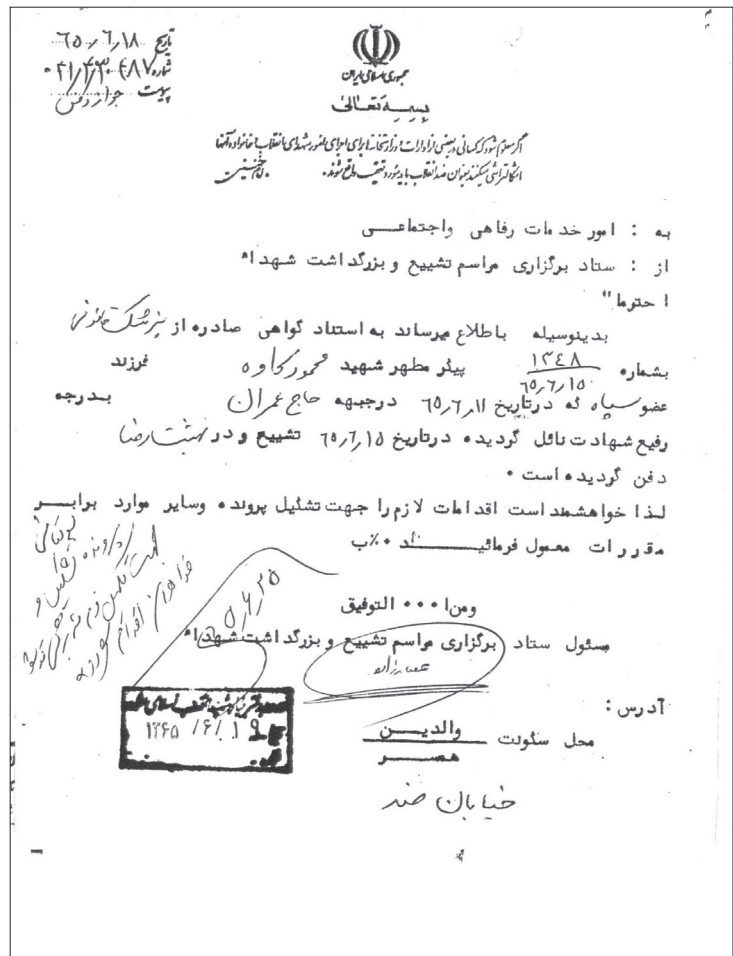 تاریخ ۶۵/۶/۱۸
شماره
پیوست جواز دفن
جمهوری اسلامی ایران
بسمه تعالی
اگر معلوم شود که کسانی در بعضی از ادارات و وزارتخانه‌ها برای اجرای امور شهدای انقلاب با خانواده آنها
اشکالتراشی میکنند بعنوان ضد انقلاب باید مورد تعقیب واقع شوند. امام خمینی
به : امور خدمات رفاهی واجتماعی
از : ستاد برگزاری مراسم تشییع و بزرگداشت شهداء
احتراما"
بدینوسیله باطلاع میرساند به استناد گواهی صادره از پزشک قانونی
بشماره ۱۳۴۸ ۶۵/۶/۱۵ پیکر مطهر شهید محمود کاوه فرزند
عضو سپاه که درتاریخ ۶۵/۶/۱۱ درجبهه حاج عمران بدرجه
رفیع شهادت نائل گردیده درتاریخ ۶۵/۶/۱۵ تشییع و در بهشت رضا
دفن گردیده است .
لذا خواهشمند است اقدامات لازم را جهت تشکیل پرونده وسایر موارد برابر
مقررات معمول فرمائید .٪ب
ومن ا... التوفیق
مسئول ستاد برگزاری مراسم تشییع و بزرگداشت شهداء
۱۳۶۵ /۶/ ۱۹
آدرس :
محل سکونت والدین
همسر
خیابان صد